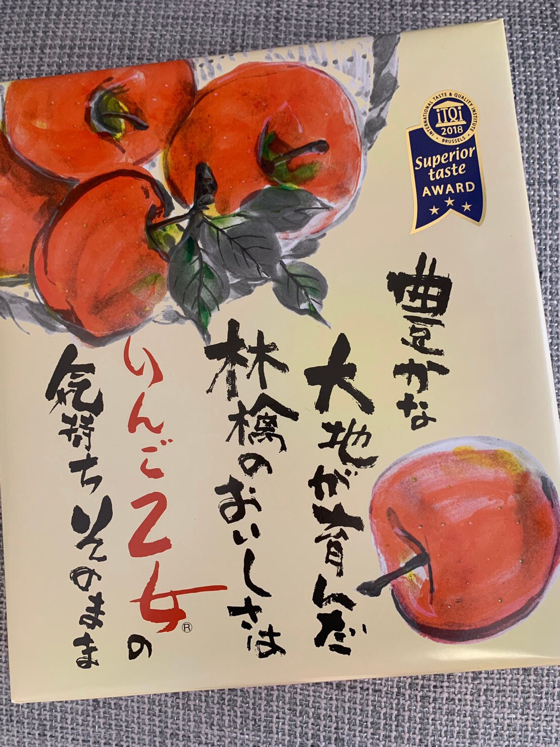 豊かな
大地が育んだ
林檎のおいしさは
りんご乙女®の
気持ちそのまま
INTERNATIONAL TASTE & QUALITY INSTITUTE
iTQi
2018
BRUSSELS
Superior
taste
AWARD